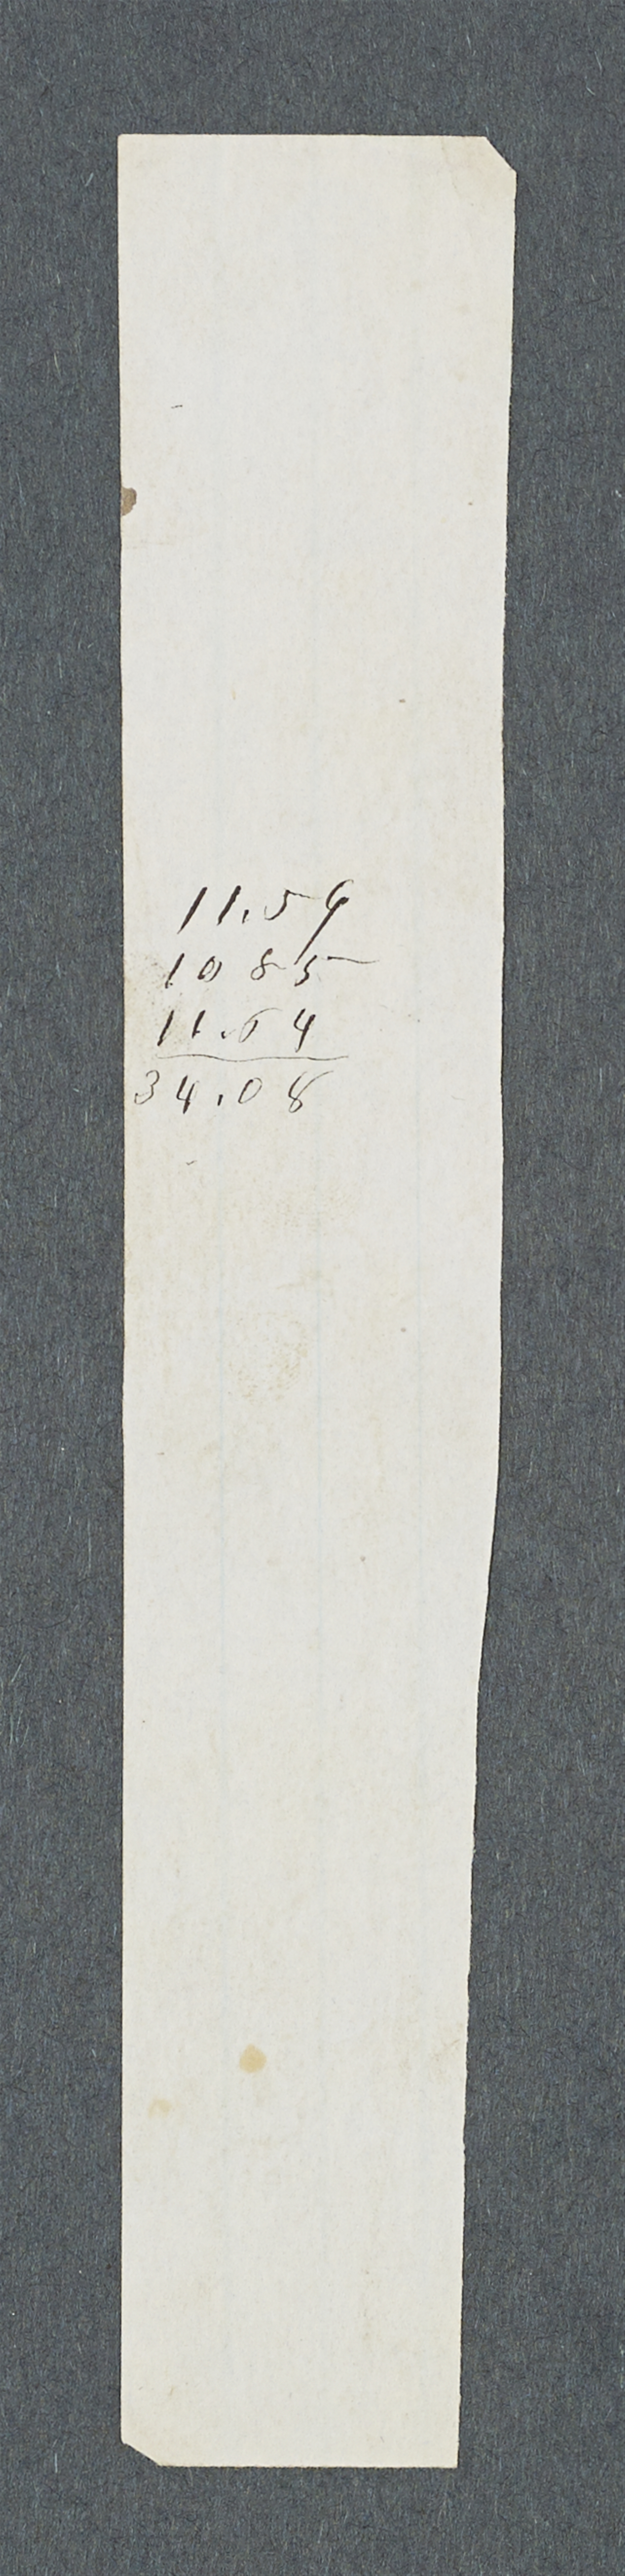 11.59
10 85
11.64
34.08